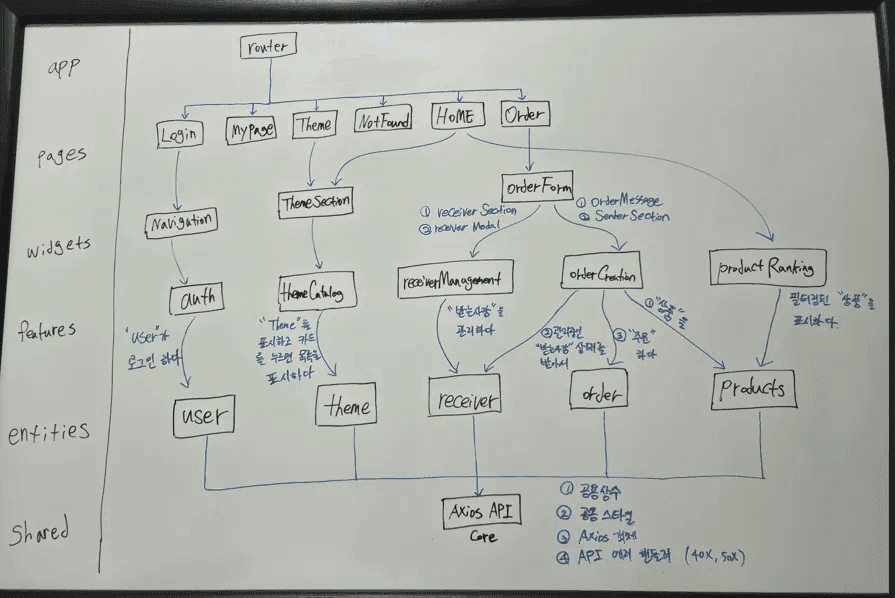 app
router
pages
Login
MyPage
Theme
NotFound
HOME
Order
widgets
Navigation
ThemeSection
orderForm
① receiver Section
② receiver Modal
① OrderMessage
② SenderSection
features
auth
themeCatalog
receiverManagement
orderCreation
productRanking
"User"가
로그인 하다
"Theme"를
표시하고 카드
를 누르면 목록을
표시하다
"받는사람"을
관리하다
② 관리중인
"받는사람" 상태를
받아서
③ "주문"
하다
① "상품"을
필터링된 "상품"을
표시하다.
entities
user
theme
receiver
order
Products
Shared
Axios API
Core
① 공용상수
② 공용 스타일
③ Axios 객체
④ API 에러 핸들러 (40X, 50X)